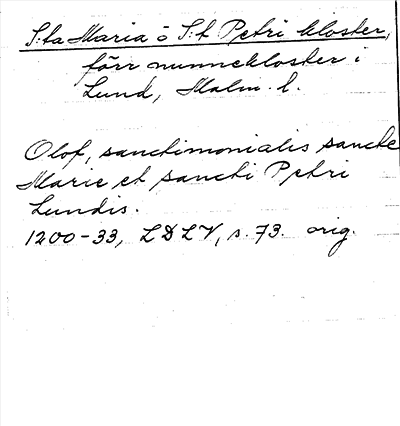 S:ta Maria o S:t Petri kloster,
förr nunnekloster i
Lund, Malm. l.
Olof, sanctimonialis sancte
Marie et sancti Petri
Lundis.
1200-33, LDLV, s. 73. orig.